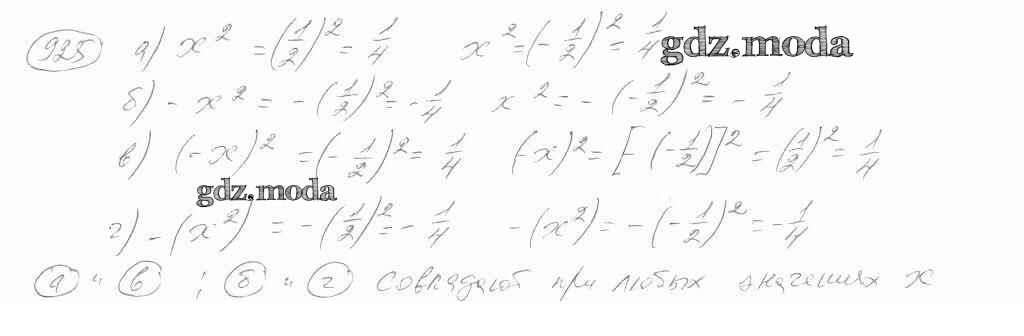 925 а) x² = (1/2)² = 1/4 x² = (-1/2)² = 1/4 gdz.moda
б) - x² = - (1/2)² = - 1/4 x² = - (-1/2)² = - 1/4
в) (-x)² = (-1/2)² = 1/4 (-x)² = [- (-1/2)]² = (1/2)² = 1/4
gdz.moda
г) - (x²) = - (1/2)² = - 1/4 - (x²) = - (-1/2)² = - 1/4
а и в ; б и г совпадают при любых значениях x